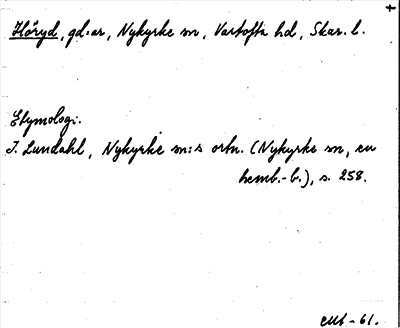 +
Höryd, gd:ar, Nykyrke sn, Vartofta hd, Skar. l.
Etymologi.
I. Lundahl, Nykyrke sn:s ortn. (Nykyrke sn, en
hemb.-b.), s. 258.
-61.